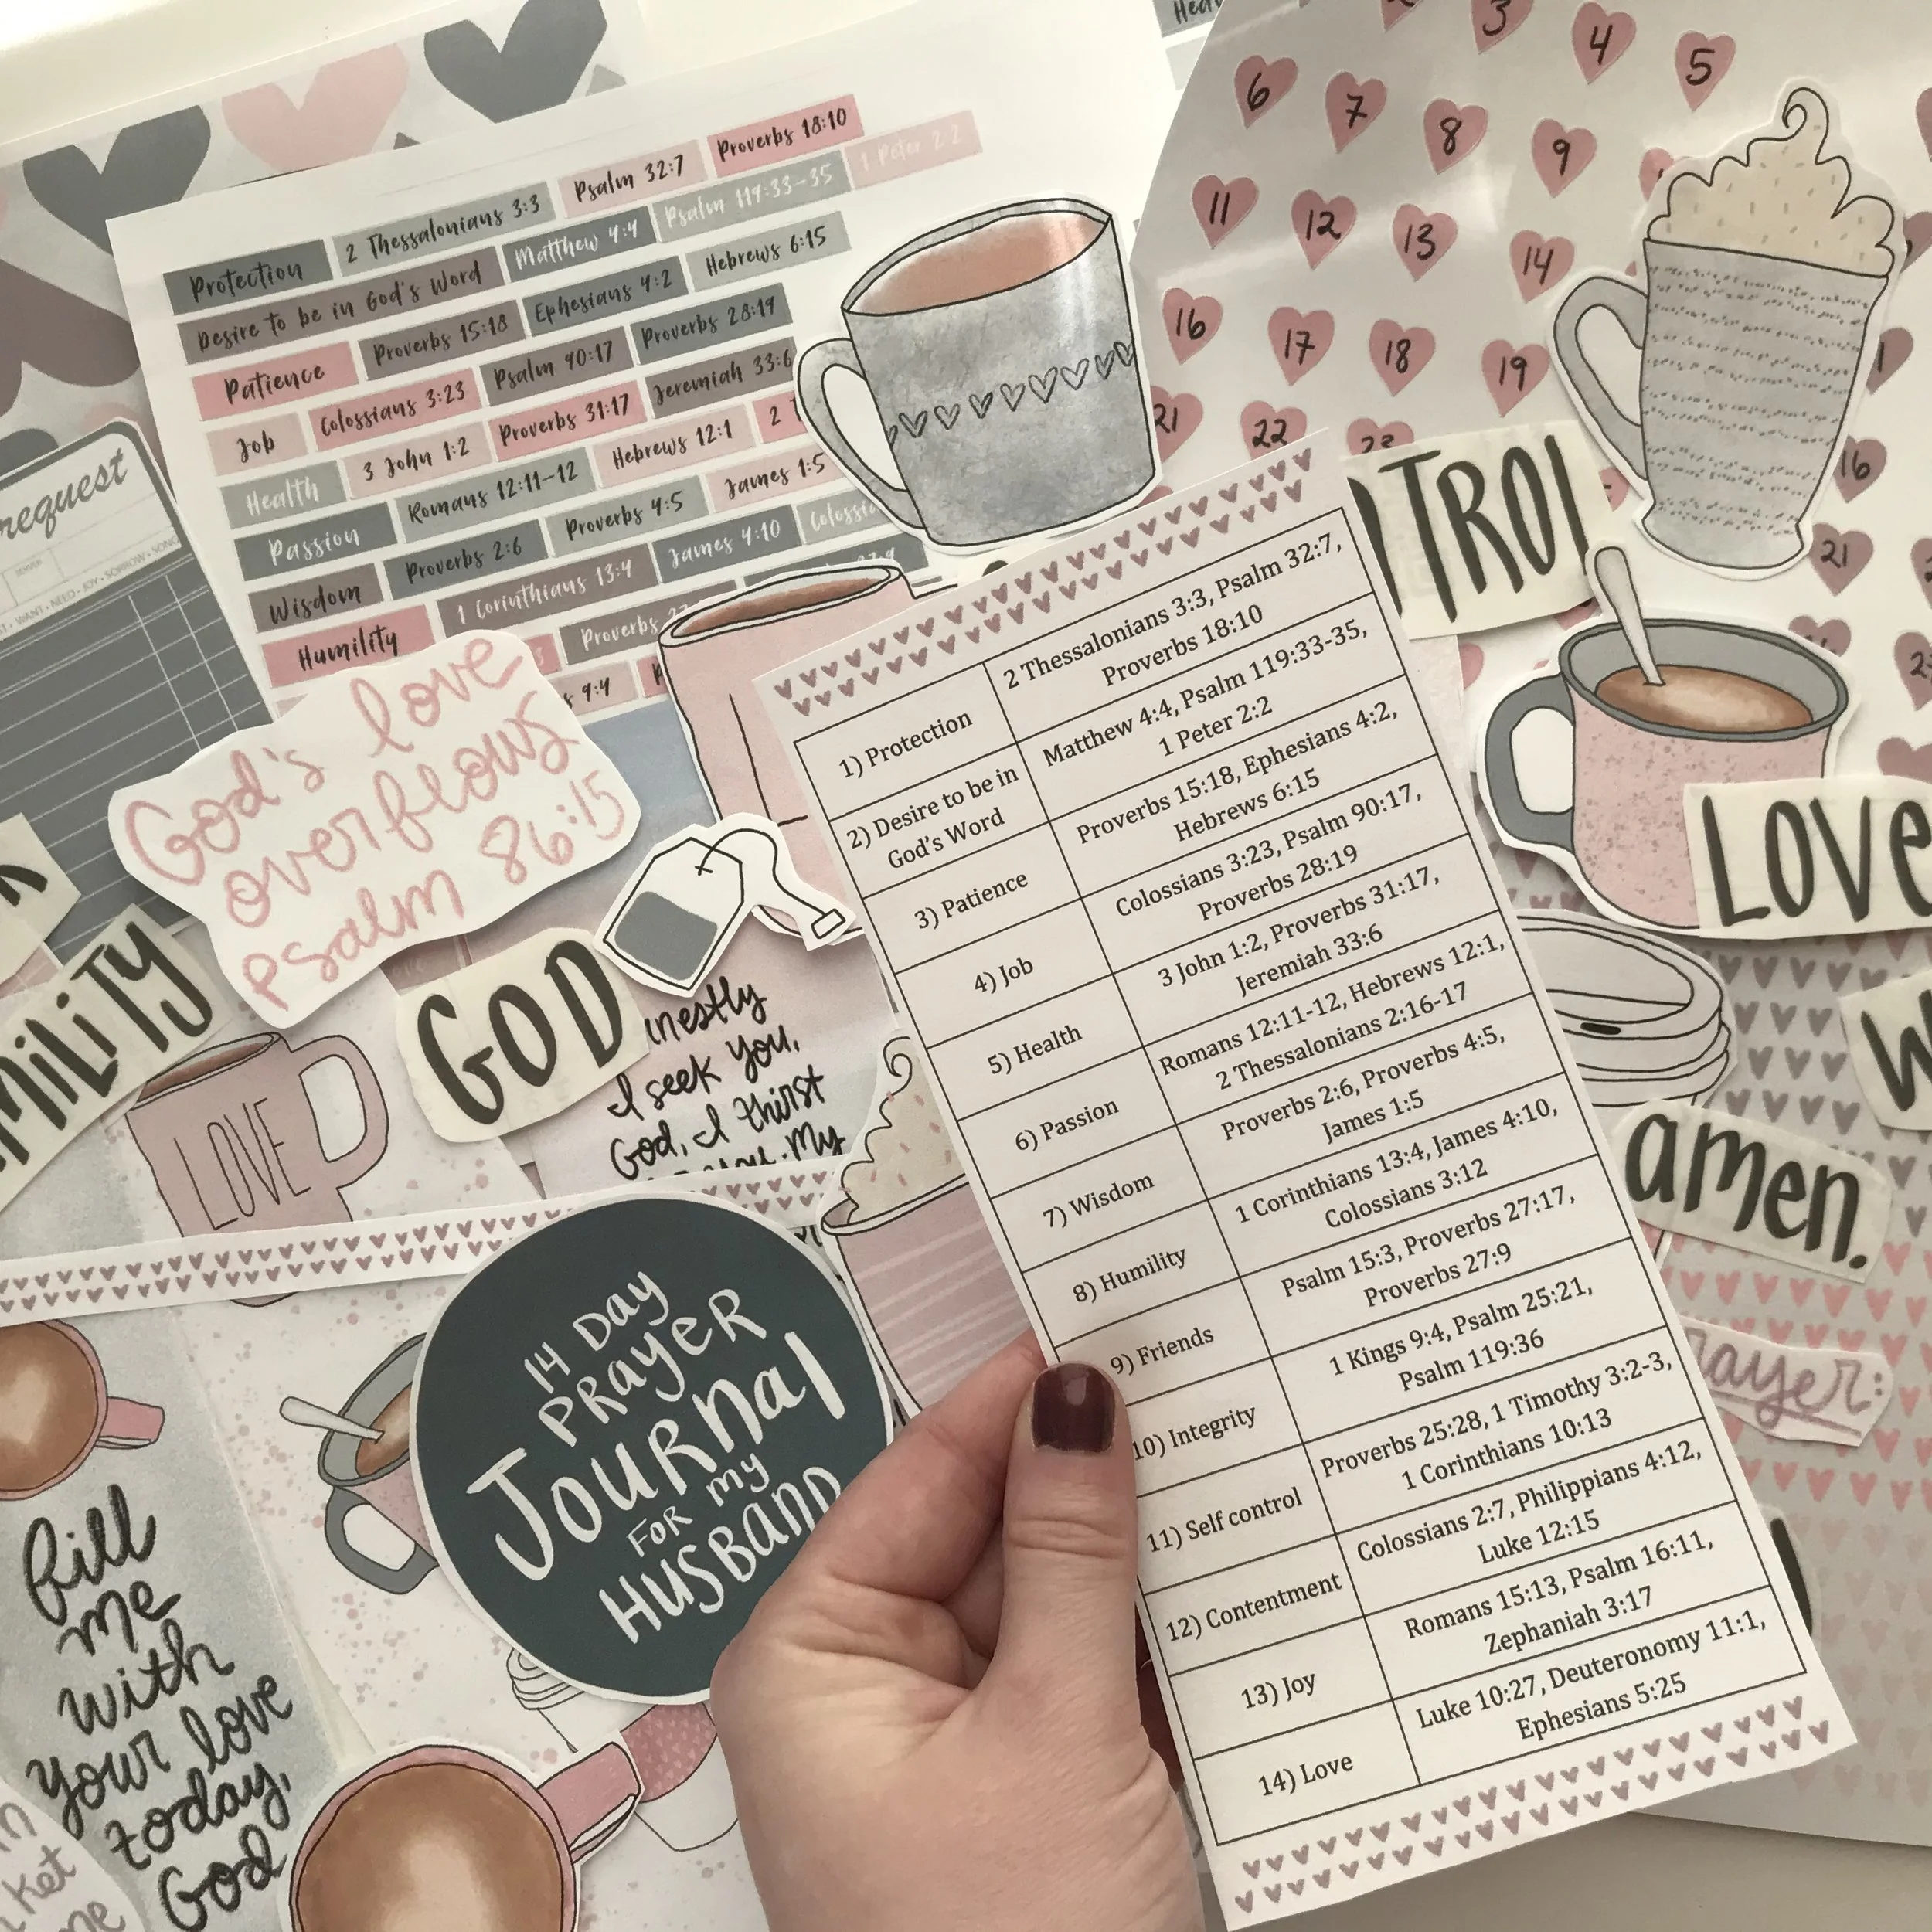 Protection 2 Thessalonians 3:3 Psalm 32:7 Proverbs 18:10
Desire to be in God's Word Matthew 4:4 Psalm 119:33-35 1 Peter 2:2
Patience Proverbs 15:18 Ephesians 4:2 Hebrews 6:15
Job Colossians 3:23 Psalm 90:17 Proverbs 28:19
Health 3 John 1:2 Proverbs 31:17 Jeremiah 33:6
Passion Romans 12:11-12 Hebrews 12:1 2
Wisdom Proverbs 2:6 Proverbs 4:5 James 1:5
Humility 1 Corinthians 13:4 James 4:10
Proverbs
3
4
5
6
7
8
9
11
12
13
14
16
17
18
19
21
22
23
16
21
request
WANT • NEED • JOY • SORROW • SONG
TROL
LOVE
God's love
overflows
Psalm 86:15
GOD
MILITY
I seek you,
God, I thirst
My
LOVE
amen.
14 Day
Prayer
Journal
for my
Husband
fill
me
with
your love
today,
God
1) Protection 2 Thessalonians 3:3, Psalm 32:7,
Proverbs 18:10
2) Desire to be in
God's Word Matthew 4:4, Psalm 119:33-35,
1 Peter 2:2
3) Patience Proverbs 15:18, Ephesians 4:2,
Hebrews 6:15
4) Job Colossians 3:23, Psalm 90:17,
Proverbs 28:19
5) Health 3 John 1:2, Proverbs 31:17,
Jeremiah 33:6
6) Passion Romans 12:11-12, Hebrews 12:1,
2 Thessalonians 2:16-17
7) Wisdom Proverbs 2:6, Proverbs 4:5,
James 1:5
8) Humility 1 Corinthians 13:4, James 4:10,
Colossians 3:12
9) Friends Psalm 15:3, Proverbs 27:17,
Proverbs 27:9
10) Integrity 1 Kings 9:4, Psalm 25:21,
Psalm 119:36
11) Self control Proverbs 25:28, 1 Timothy 3:2-3,
1 Corinthians 10:13
12) Contentment Colossians 2:7, Philippians 4:12,
Luke 12:15
13) Joy Romans 15:13, Psalm 16:11,
Zephaniah 3:17
14) Love Luke 10:27, Deuteronomy 11:1,
Ephesians 5:25